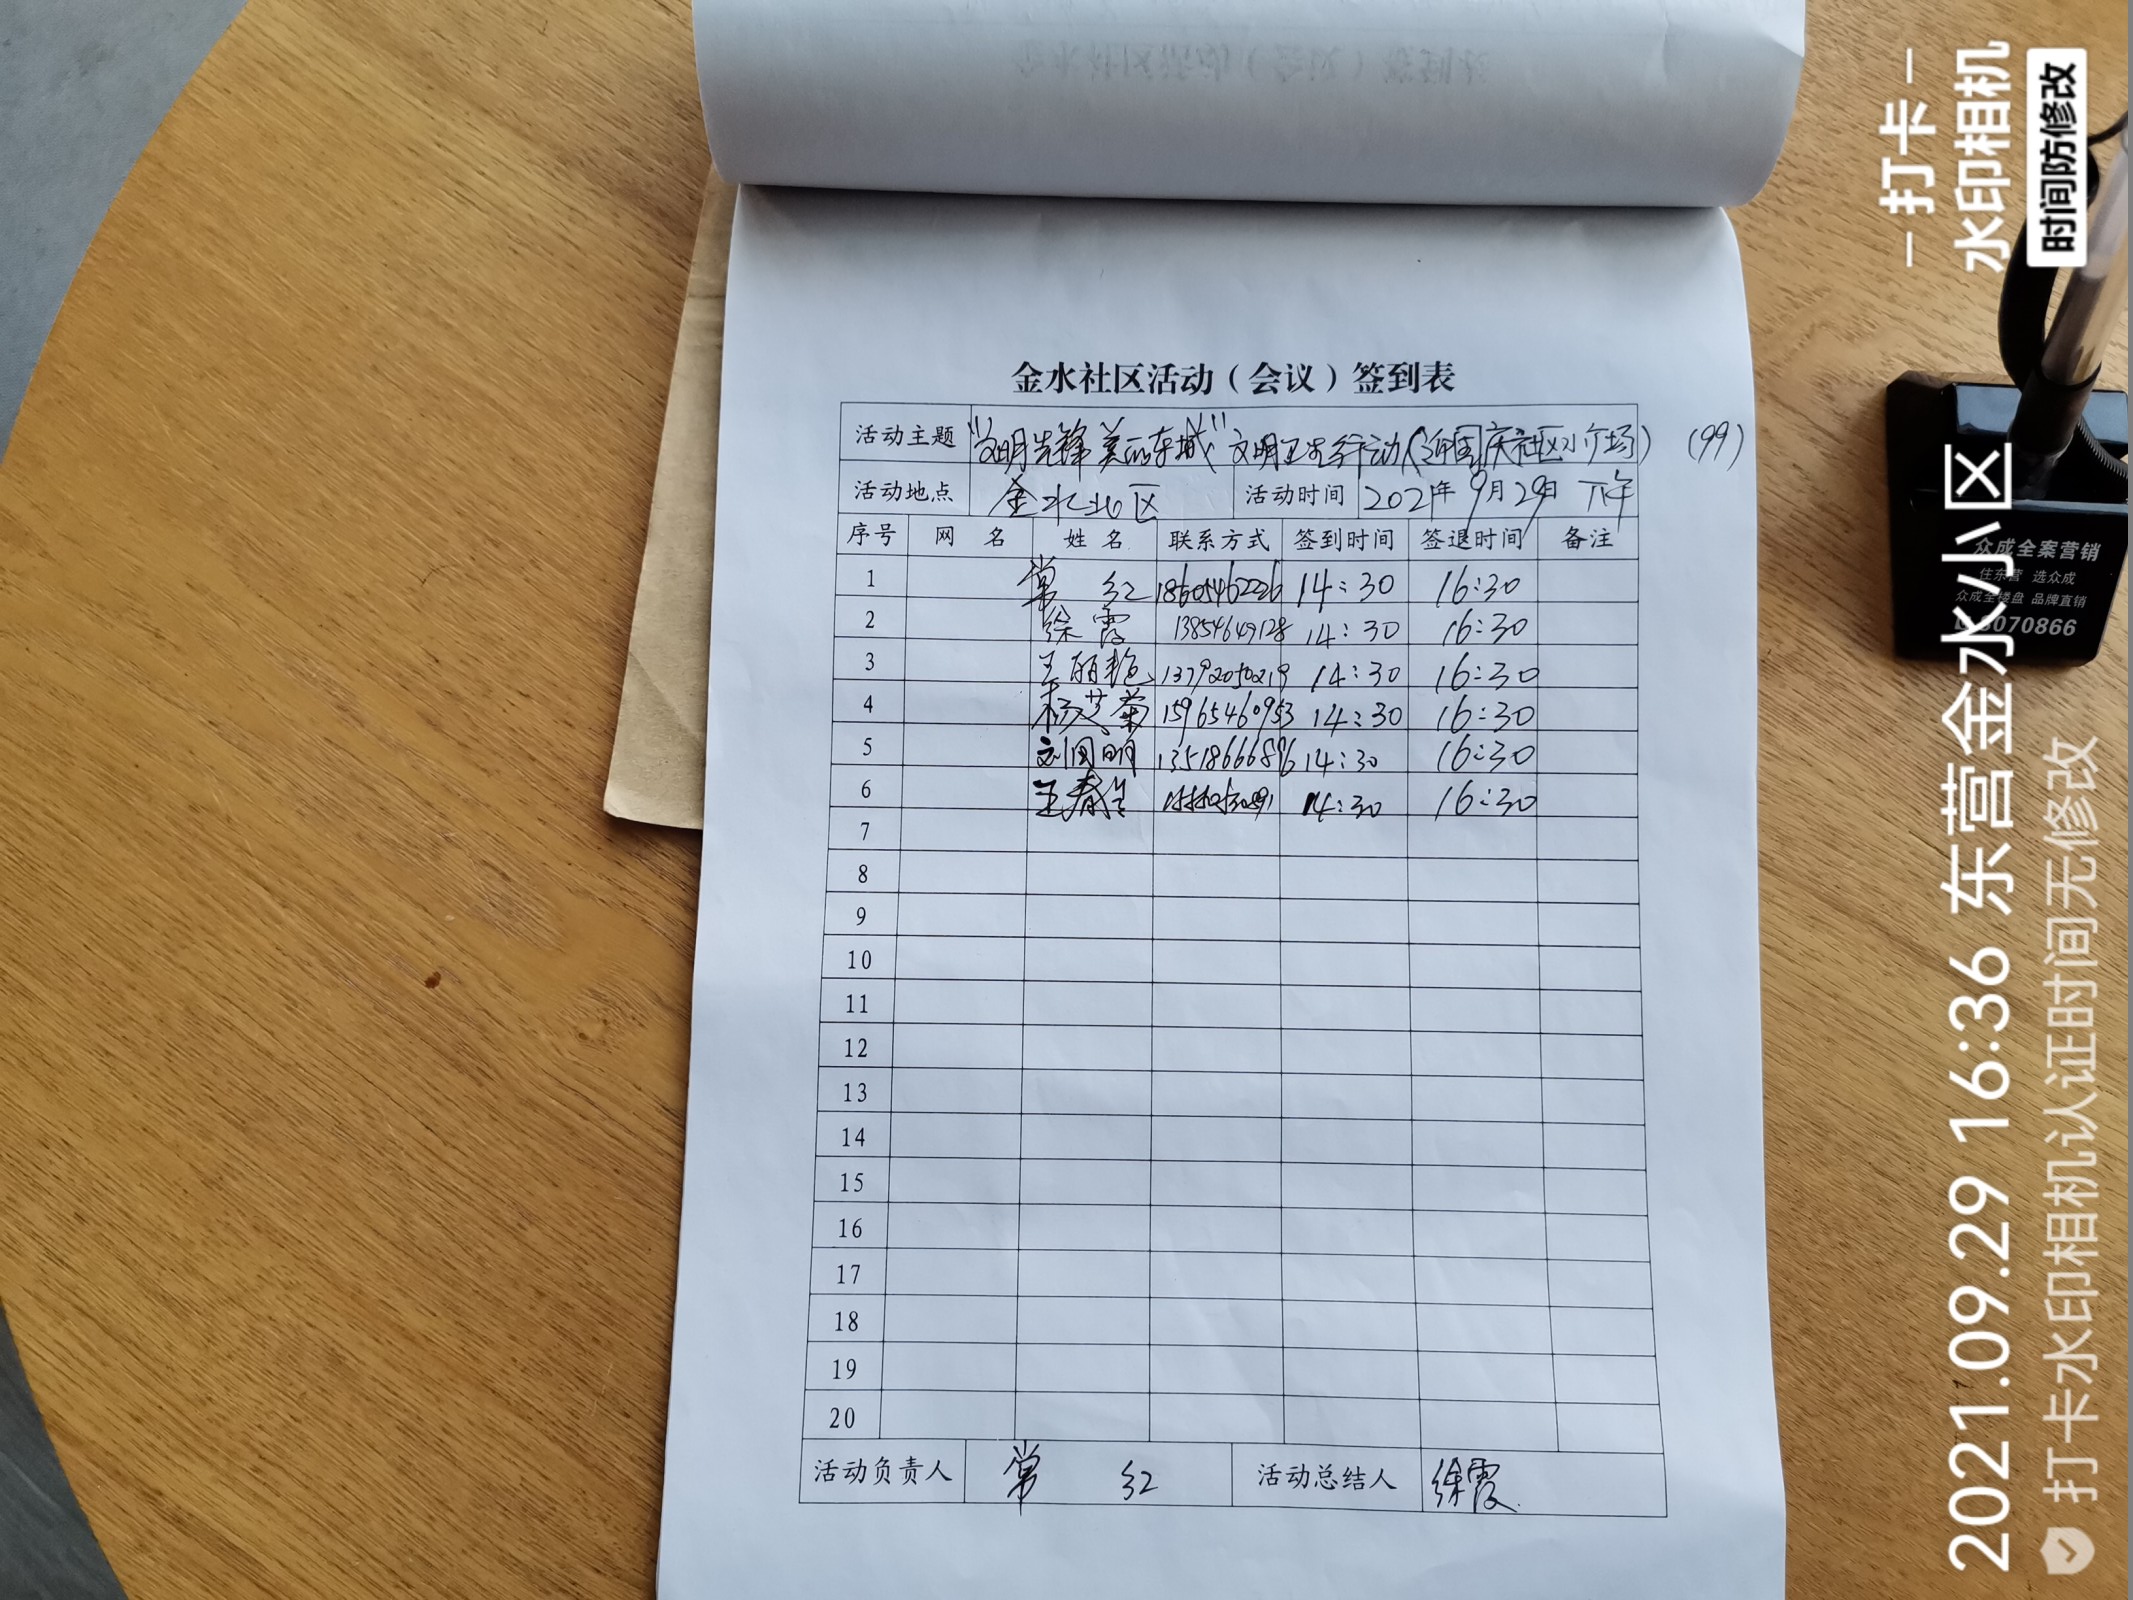 金水社区活动（会议）签到表
活动主题 "文明先锋 美丽东城" 文明卫生行动(迎国庆社区小广场) (99)
活动地点 金水北区 活动时间 2021年9月29日 下午
序号 网 名 姓 名 联系方式 签到时间 签退时间 备注
1 常 红 18605462226 14:30 16:30
2 徐霞 13854649128 14:30 16:30
3 王丽艳 13792050219 14:30 16:30
4 杨艾菊 15965460953 14:30 16:30
5 刘国明 13518666896 14:30 16:30
6 王春生 14:30 16:30
7
8
9
10
11
12
13
14
15
16
17
18
19
20
活动负责人 常 红 活动总结人 徐霞
众成全案营销
住东营 选众成
众成全楼盘 品牌直销
8070866
- 打卡 -
水印相机
时间防修改
2021.09.29 16:36 东营金水小区
打卡水印相机认证时间无修改